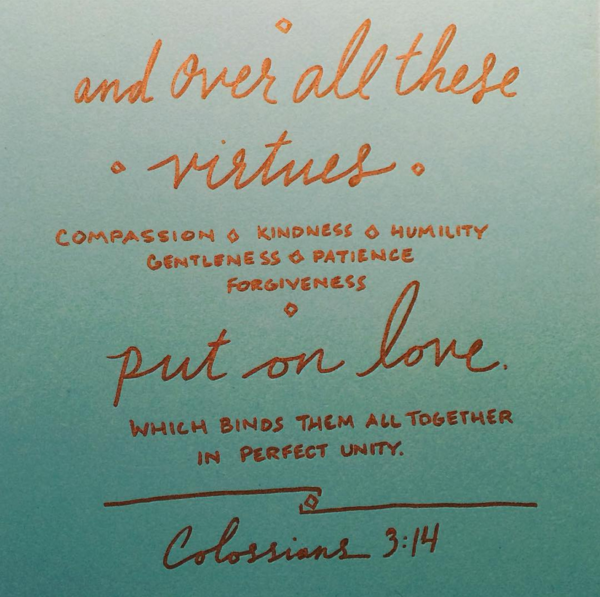 and over all these
virtues
COMPASSION ◇ KINDNESS ◇ HUMILITY
GENTLENESS ◇ PATIENCE
FORGIVENESS
put on love.
WHICH BINDS THEM ALL TOGETHER
IN PERFECT UNITY.
Colossians 3:14